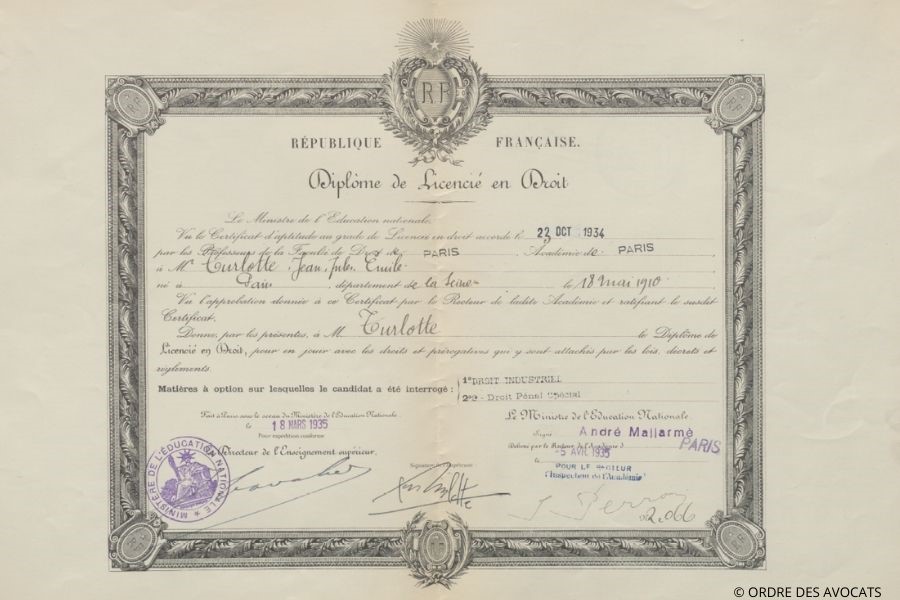 RF
RÉPUBLIQUE FRANÇAISE.
Diplôme de Licencié en Droit
Le Ministre de l'Education nationale,
Vu le Certificat d'aptitude au grade de Licencié en droit accordé le 22 OCT 1934
par les Professeurs de la Faculté de Droit de PARIS Académie de PARIS
à Mr Turlotte Jean Jules Emile
né à Paris, département de la Seine le 18 mai 1910
Vu l'approbation donnée à ce Certificat par le Recteur de ladite Académie et ratifiant le susdit
Certificat,
Donne, par les présentes, à M. Turlotte le Diplôme de
Licencié en Droit, pour en jouir avec les droits et prérogatives qui y sont attachés par les lois, décrets et
règlements.
Matières à option sur lesquelles le candidat a été interrogé :
1° DROIT INDUSTRIEL
2° - Droit Pénal Spécial
Fait à Paris sous le sceau du Ministère de l'Education Nationale
le 18 MARS 1935
Pour expédition conforme
Directeur de l'Enseignement supérieur,
Le Ministre de l'Education Nationale
Signé André Mallarmé
Délivré par le Recteur de l'Académie d PARIS
le -5 AVR 1935
POUR LE RECTEUR
l'Inspecteur de l'Académie
MINISTÈRE DE L'ÉDUCATION NATIONALE
Signature de l'impétrant
2.066
© ORDRE DES AVOCATS